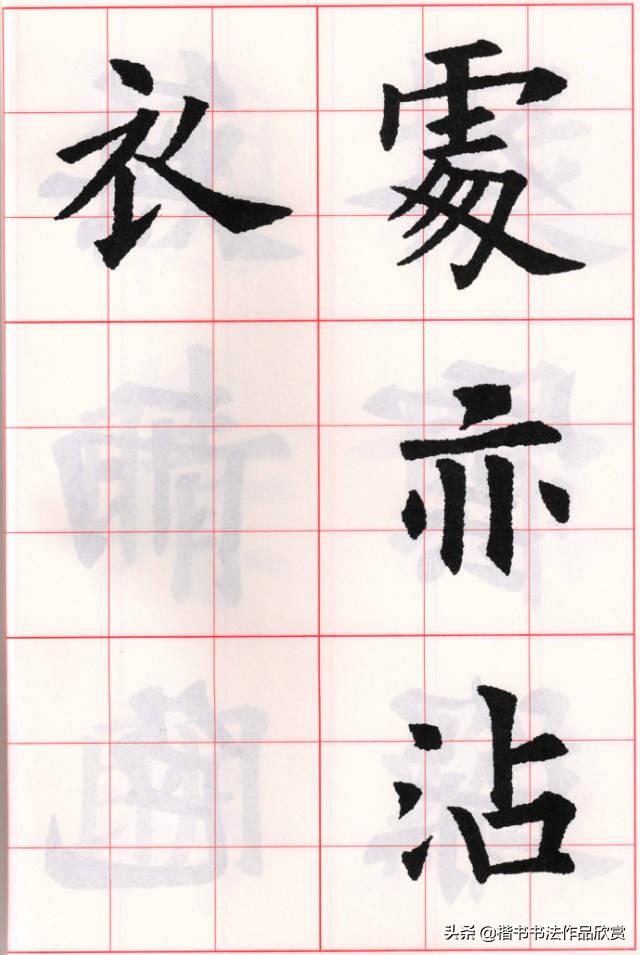 處亦沾
衣
头条 @楷书书法作品欣赏